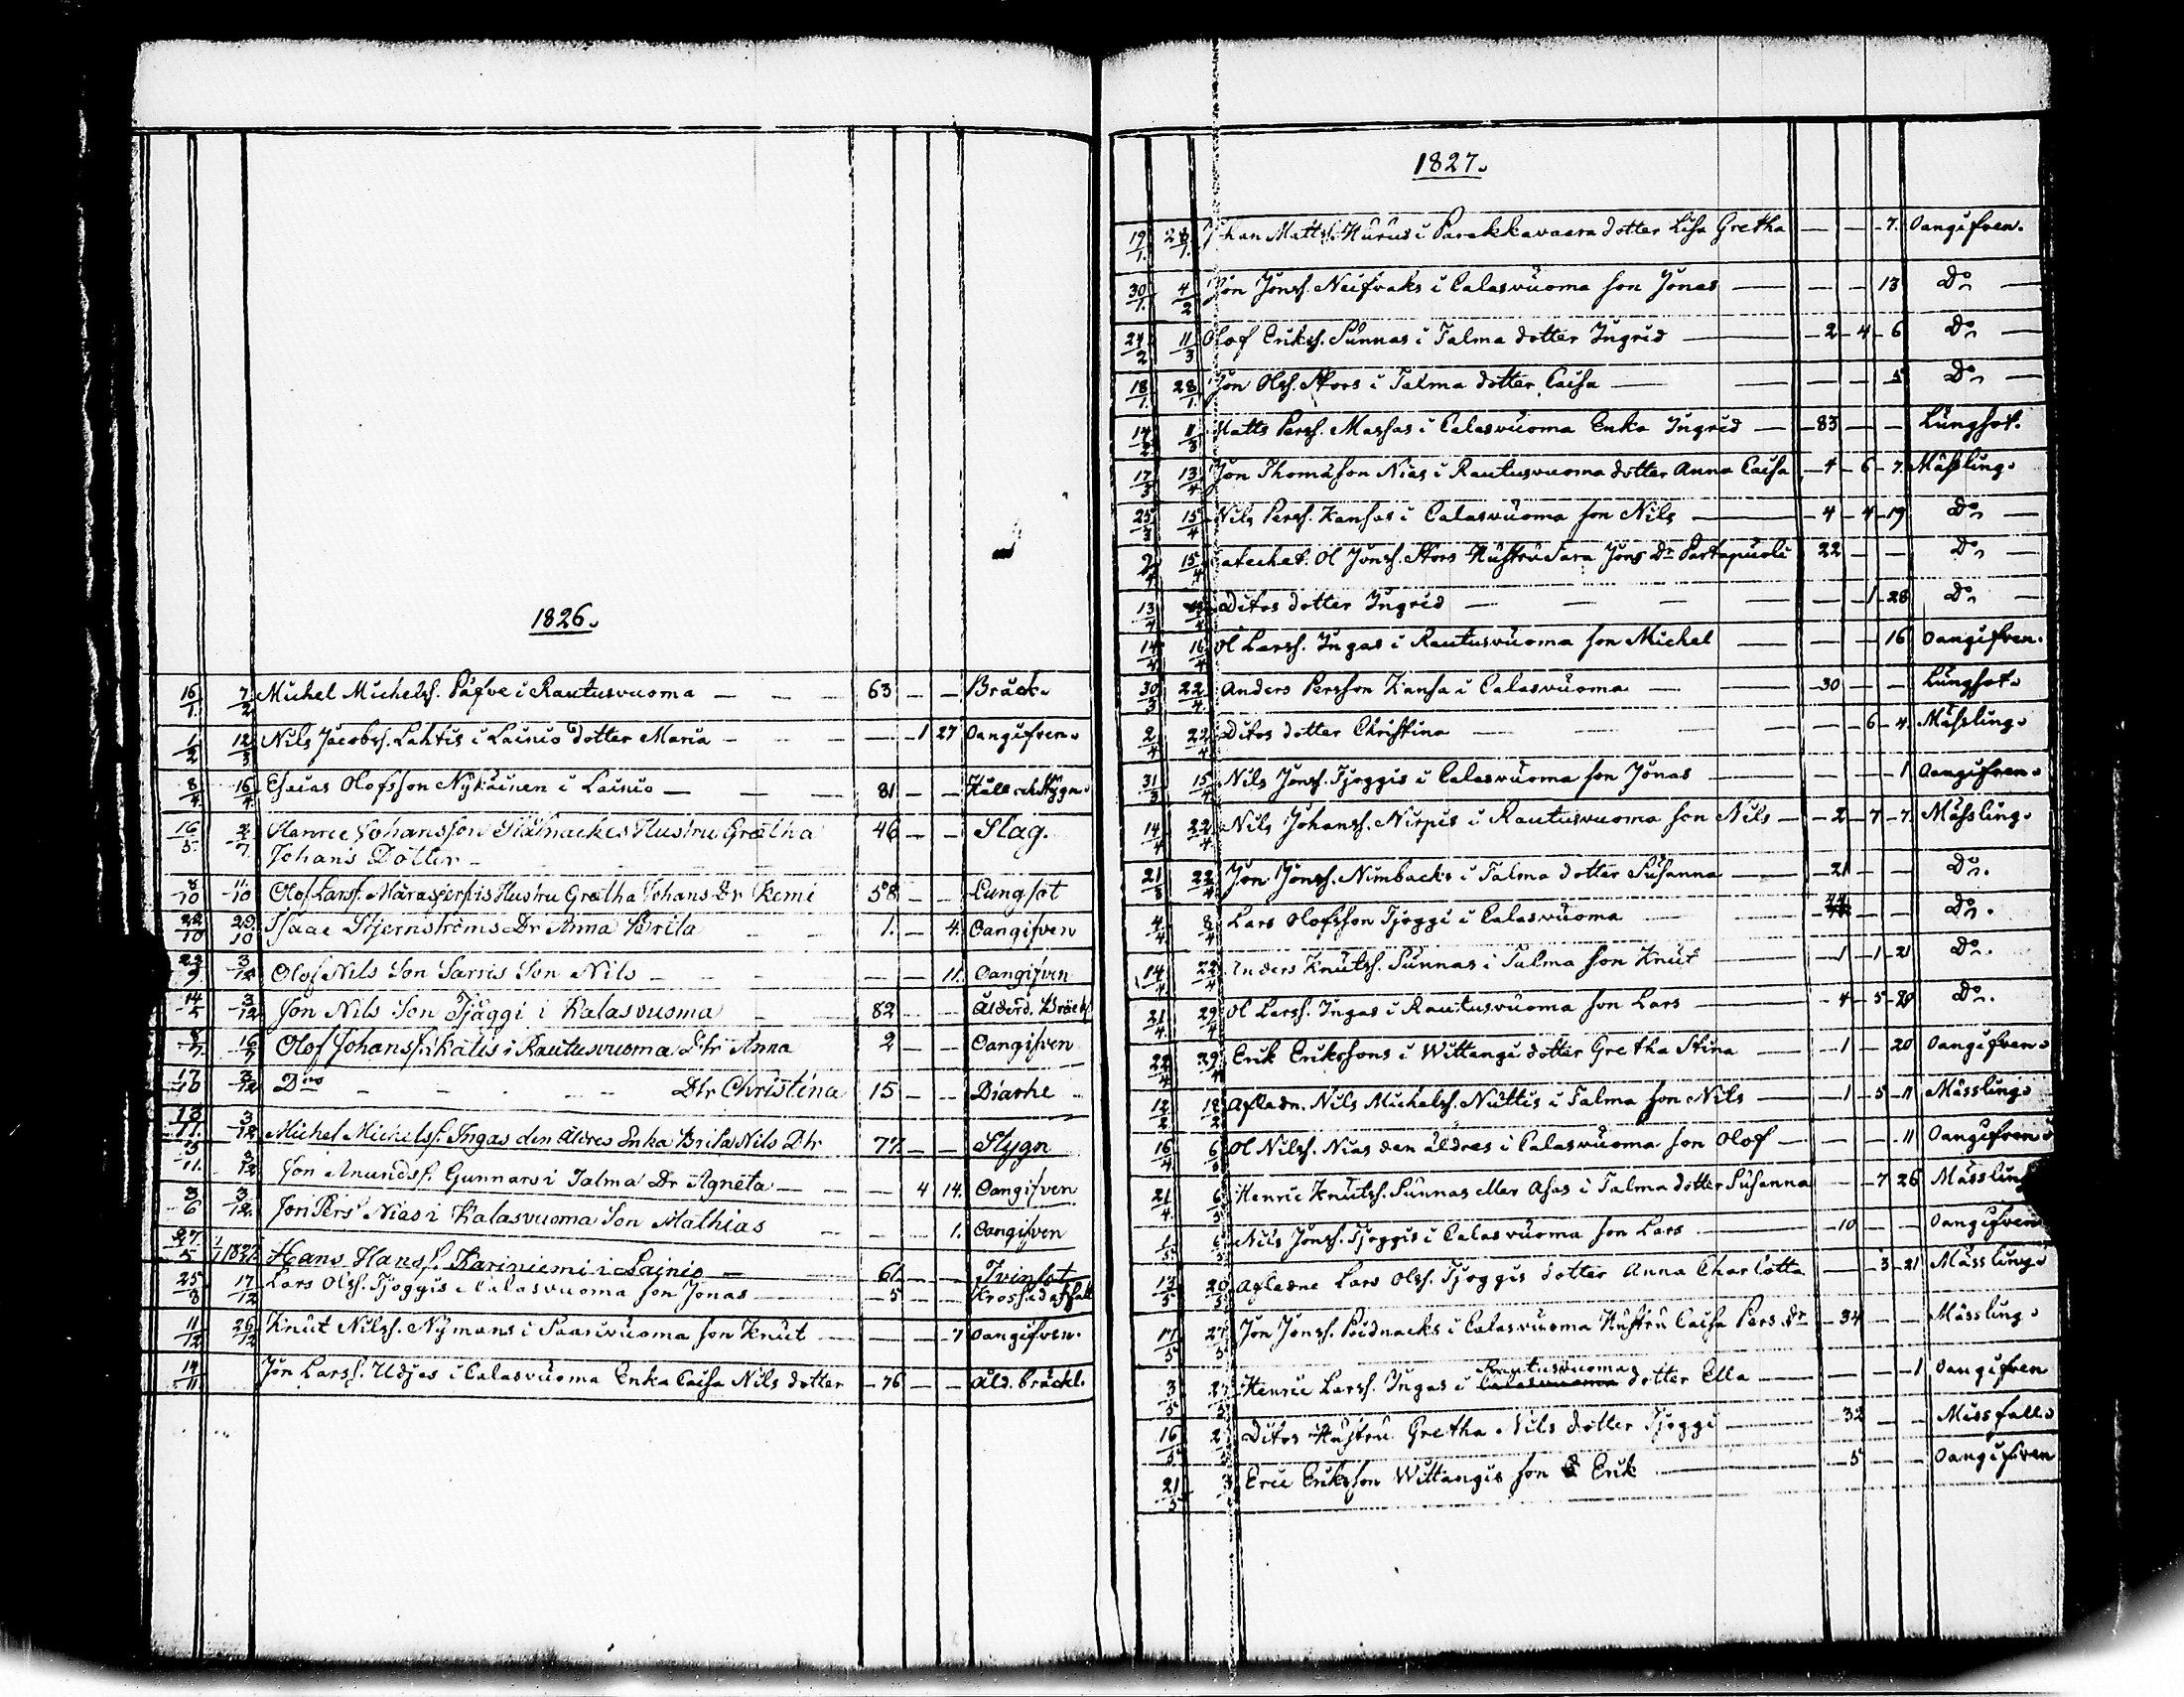 1826.
16/1. 7/2 Michel Michelss. Påfve i Rautusvuoma — — — 63 — — Bråck.
1/2 12/3 Nils Jacobss. Lahtis i Lainio dotter Maria — — — 1 27 Oangifven.
8/4 16/4 Esaias Olofsson Nykäinen i Lainio — — — 81 — — Håll och Stygn.
16/5. 2/7. Henric Johansson Hustru Gretha 46 — — Slag.
Johans Dotter —
8/10 11/10 Olof Larss. Hustru Gretha Johans Dr Kemi 58 — — Lungsot
22/10 29/10 Isaac Stjernströms Dr Anna Brita 1. — 4. Oangifven
22/9. 3/12 Olof Nils Son Sarris Son Nils — — — 11. Oangifven
14/5 3/12 Jon Nils Son Tjäggi i Kalasvuoma 82 — — Ålderd. Bräckl.
8/7. 16/7 Olof Johanss. i Rautusvuoma Dtr Anna 2 — — Oangifven
17/10 3/12 Dito — — — Dtr Christina 15 — — Diarhe
13/11. 3/12 Michel Michelss. Ingas den Äldres Enka Brita Nils Dtr 77. — — Stygn
3/11. 3/12 Jon Anundss. Gunnars i Talma Dr Agneta — — — 4 14. Oangifven
3/6 3/12. Jon Pers Nias i Kalasvuoma Son Mathias — — 1. Oangifven
27./5 1/1 1827. Hans Hanss. Kariniemi i Lainio — 61. — — Tvinsot
25/8 17/12 Lars Olss. Tjoggis i Calasvuoma son Jonas — 5 — —
11/12 26/12 Knut Nilss. Nÿmans i Saarivuoma son Knut — — — 7 Oangifven.
14/11 Jon Larss. Udjas i Calasvuoma Enka Caisa Nils dotter — 76 — — Åld. bräckl.
1827.
19/1. 28/1. Johan Matts. Hurus i Parakkavaara dotter Lisa Gretha — — 7. Oangifven.
30/1. 4/2 Jon Jonss. Neifvaks i Calasvuoma son Jonas — — — 13 Do —
24/2 11/3 Olof Erikss. Sunnas i Talma dotter Ingrid — 2 — 4 — 6 Do —
18/1. 28/1. Jon Olss. Skors i Talma dotter Caisa — — — 5 Do —
14/2 11/3 Matts Perss. Massas i Calasvuoma Enka Ingrid — 83 — — Lungsot.
17/3 13/4 Jon Thomasson Nias i Rautusvuoma dotter Anna Caisa — 4 — 6 — 7. Mässling.
25/3 15/4 Nils Perss. Kansas i Calasvuoma son Nils — 4 — 4 — 19 Do —
2/4 15/4 Catechet. Ol Jonss. Skors Hustru Sara Jons Dr Partapuoli 22 — — Do —
13/4 Ditos dotter Ingrid — — — — 1 — 28 Do —
14/4 16/4 Ol Larss. Ingas i Rautusvuoma son Michel — — — 16 Oangifven.
30/3 22/4 Anders Persson Kansa i Calasvuoma — — 30 — — Lungsot.
2/4 22/4 Ditos dotter Christina — — — 6 — 4. Mässling.
31/3 15/4 Nils Jonss. Tjoggis i Calasvuoma son Jonas — — — 1 Oangifven.
14/4 22/4 Nils Johanss. Nirpis i Rautusvuoma son Nils — 2 — 7 — 7. Mässling.
21/3 22/4 Jon Jonss. Nimbacks i Talma dotter Susanna — 21 — — Do.
4/4 8/4 Lars Olofsson Tjoggi i Calasvuoma — 44 — — Do.
14/4 22/4 Anders Knutss. Sunnas i Talma son Knut — 1 — 1 — 21 Do.
21/4. 29/4 Ol Larss. Ingas i Rautusvuoma son Lars — 4 — 5 — 29 Do.
22/4 29/4 Erik Erikssons i Wittangi dotter Gretha Stina — 1 — 20 Oangifven.
12/2 18/2 Afledn. Nils Michelss. Nuttis i Talma son Nils — 1 — 5 — 11 Mässling.
16/4 6/5 Ol Nilss. Nias den äldres i Calasvuoma son Olof — — — 11 Oangifven.
21/4 6/5 Henric Knutss. Sunnas eller Asas i Talma dotter Susanna — 7 26 Mässling
1/5 6/5 Nils Jonss. Tjoggis i Calasvuoma son Lars — 10 — — Oangifven
13/5 20/5 Afledne Lars Olss. Tjoggis dotter Anna Charlotta — 3 — 21 Mässling.
17/5 27/5 Jon Jonss. Poidnacks i Calasvuoma Hustru Caisa Pers Dr — 34 — — Mässling.
3/5 27/5 Henric Larss. Ingas i Calasvuoma Rautusvuoma dotter Ella — — — 1 Oangifven
16/5 Ditos Hustru Gretha Nils dotter Tjoggi — 32 — — Missfall.
21/5 Eric Eriksson Wittangis son Erik — 5 — — Oangifven